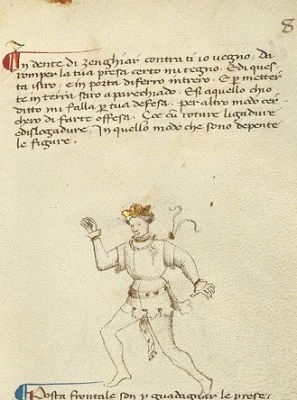 8
In dente di zenghiar contra ti io vegno. Da
romper la tua presa certo mi tegno. E di ques
ta isiro, e in porta di ferro intrero. E p metter
te in terra saro aparechiado. E si aquello chio
ditto mi falla p tua defesa, per altro modo cer
chero di farte offesa. Çoe cũ roture ligadure
e dislogadure. In quello modo che sono depente
le figure.
Posta frontale son p guadagnar le prese.